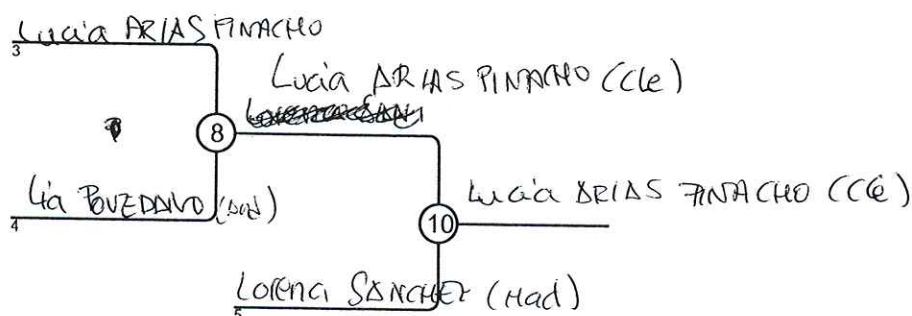 Lucia ARIAS PINACHO
3
Lucia ARIAS PINACHO (Cle)
8
Lia POVEDANO (And)
4
Lucia ARIAS PINACHO (Cle)
10
Lorena SÁNCHEZ (Mad)
5